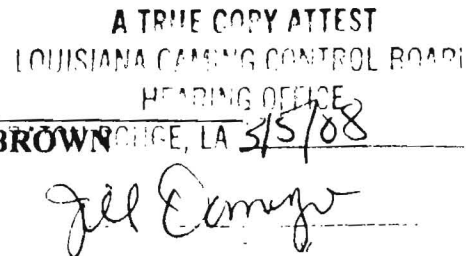 A TRUE COPY ATTEST
LOUISIANA GAMING CONTROL BOARD
HEARING OFFICE
BROWN ROUGE, LA 3/5/08
Jill